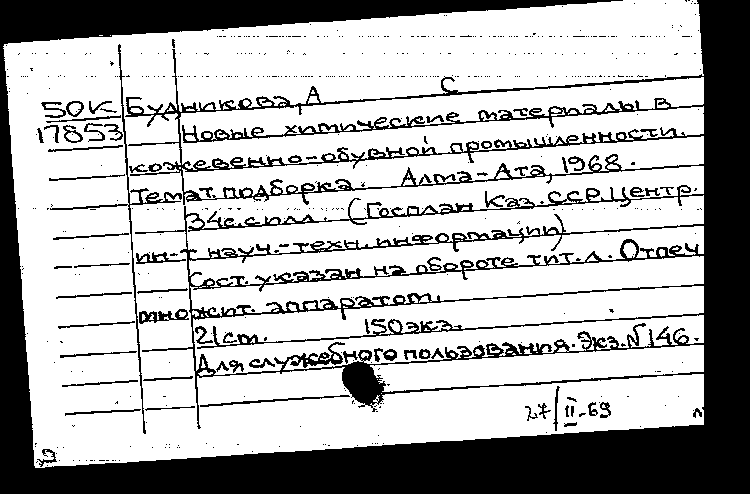 С
50К Будникова, А
17853 Новые химические материалы в
кожевенно-обувной промышленности.
Темат. подборка. Алма-Ата, 1968.
34с. с илл. (Госплан Каз. ССР. Центр.
ин-т науч.-техн. информации)
Сост. указан на обороте тит. л. Отпеч
множит. аппаратом.
21 cm. 150 экз.
Для служебного пользования. Экз. N 146.
27/II-69